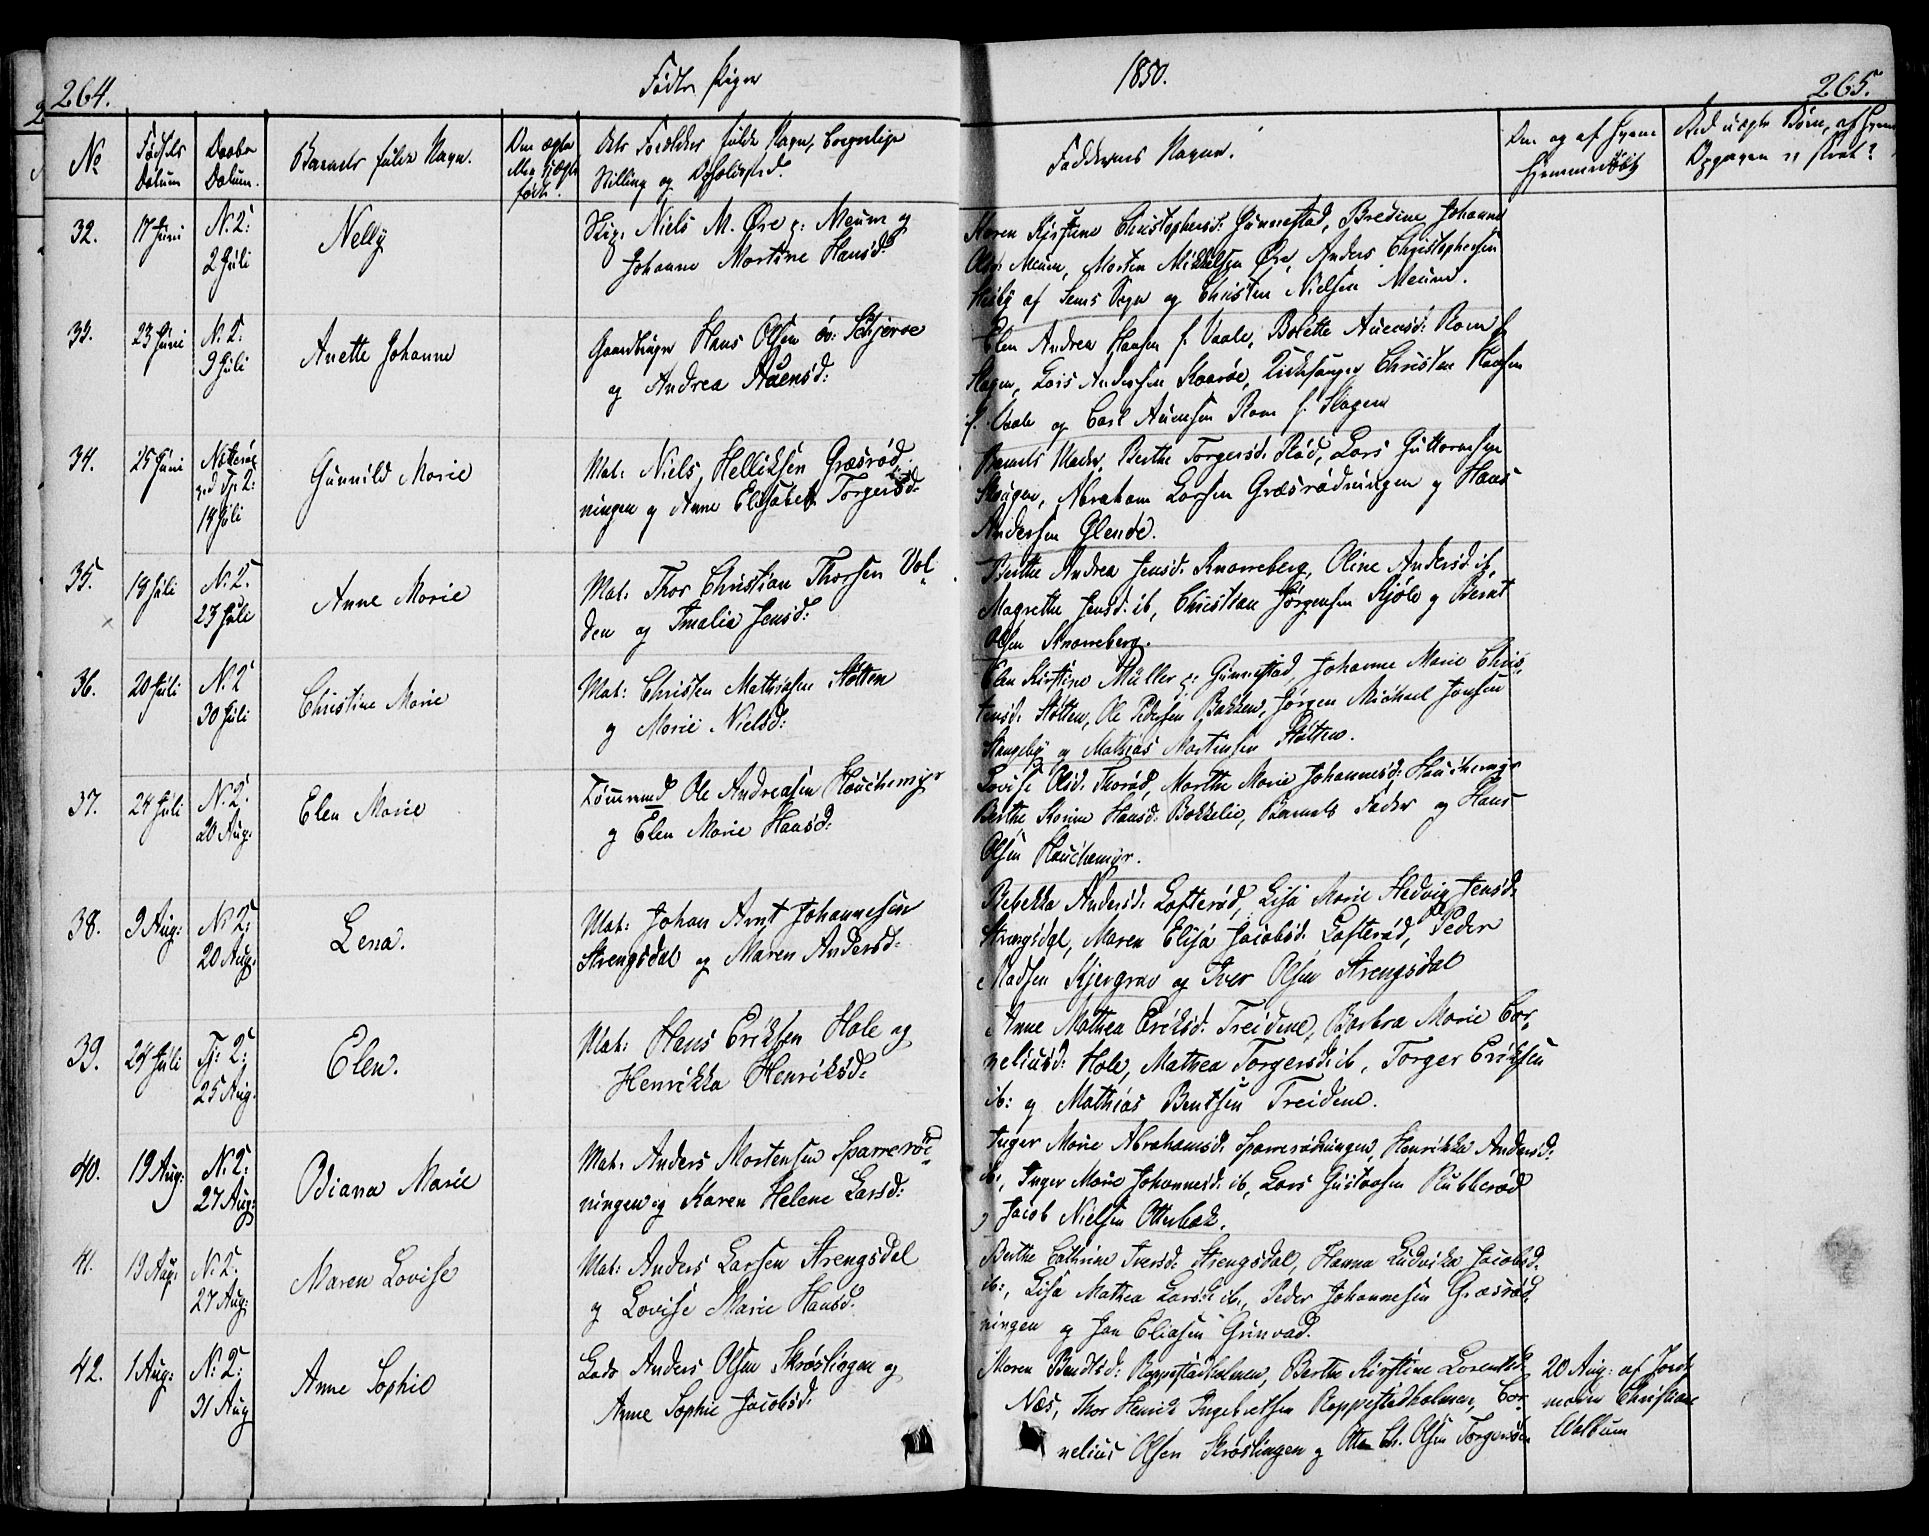 264.
Fødte Piger
1850.
265.
No
Fødsels Datum
Daabs Datum.
Barnets fulde Navn.
Om ægte eller uægte født.
Dets Forældres fulde Navn, borgerlige
Stilling og Opholdssted.
Faddernes Navne.
Om og af hvem
hjemmedøbt
Ved uægte Børn, af hvem
Opgaven er skeet?
32.
17 Juni
N. 2:
2 Juli
Nelly
Niels M. Øre p: Meum og
Johanne Mortine Hansd:
Maren Kirstine Christophersd: Gunnestad, Bredine Johanne
Olsd: Meum, Morten Mikkelsen Øre, Anders Christophersen
af Sems Sogn og Christen Nielsen Meum.
33.
23 Juni
N. 2:
9 Juli
Anette Johanne
Gaardbruger Hans Olsen øv: Schjerve
og Andrea Auensd:
Elen Andrea Hansen f. Vaale, Bolette Auensd: Rom f.
Slagen, Lars Andersen Kaarøe, Kirkesanger Christen Hansen
f. Vaale og Carl Auensen Rom f. Slagen
34.
25 Juni
Nøtterøe
ved Tj: 2:
14 Juli
Gunnild Marie
Mat: Niels Helliksen Græsrød-
ningen og Anne Elisabeth Torgersd:
Barnets Moder, Berthe Torgersd: Rød, Lars Guttormsen
Skougen, Abraham Larsen Græsrødningen og Hans
Andersen Glende.
35.
14 Juli
N. 2:
23 Juli
Anne Marie
Mat: Thor Christian Thorsen Vol-
den og Amalia Jensd:
Berthe Andrea Jensd: Knarreberg, Oline Andersd: ib,
Magrethe Jensd: ib, Christian Jørgensen Kjøle og Bernt
Olsen Knarreberg.
36.
20 Juli
N. 2
30 Juli
Christine Marie
Mat: Christen Mathisen Støtten
og Marie Nielsd:
Elen Kirstine Müller p: Gunnestad, Johanne Marie Chris-
tensd: Støtten, Ole Pedersen Bakken, Jørgen Michael Jensen
Stangeby og Mathias Mortensen Støtten.
37.
24 Juli
N. 2:
20 Aug:
Elen Marie
Tømmmd Ole Andreasen Hauchemyr
og Elen Marie Hansd:
Lovise Olsd: Thorød, Marthe Marie Johannesd: Hauchemyr
Berthe Karine Hansd: Bokkelie, Barnets Fader og Hans
Olsen Hauchemyr.
38.
9 Aug:
N. 2:
20 Aug.
Lena.
Mat: Johan Arnt Johannesen
Strengsdal og Maren Andersd:
Rebekka Andersd: Lofterød, Lisa Marie Hedvig Jensd:
Strengsdal, Maren Elisa Jacobsd: Lofterød, Peder
Madsen Kjergrav og Iver Olsen Strengsdal
39.
24 Juli
Tj: 2:
25 Aug.
Elen.
Mat: Hans Eriksen Hole og
Henrikka Henriksd:
Anne Mathea Eriksd: Treidene, Barbra Marie Cor-
neliusd: Hole, Mathea Torgersd: ib, Torger Eriksen
ib: og Mathias Bentsen Treidene.
40.
19 Aug:
N. 2:
27 Aug:
Odiana Marie
Mat: Anders Mortensen Sparrerød-
ningen og Karen Helene Larsd:
Inger Marie Abrahamsd: Sparrerødningen, Henrikka Andersd:
ib:, Inger Marie Johannesd: ib, Lars Gustavsen Rubberød
og Jacob Nielsen Otterbæk.
41.
19 Aug:
N. 2:
27 Aug:
Maren Lovise
Mat: Anders Larsen Strengsdal
og Lovise Marie Hansd:
Berthe Cathrine Iversd: Strengsdal, Hanna Ludvika Jacobsd:
ib:, Lisa Mathea Larsd: ib:, Peder Johannesen Græsrød-
ningen og Jan Eliasen Grinvad.
42.
1 Aug:
N. 2:
31 Aug
Anne Sophie
Lods Anders Olsen Skrøslingen og
Anne Sophie Jacobsd:
Maren Bendtsd: Roppestadholmen, Berthe Kirstine Lorentsd:
Næs, Thor Henrik Ingebretsen Roppestadholmen, Cor-
nelius Olsen Skrøslingen og Otto Ch. Olsen Torgersøen
20 Aug: af Jord-
moder Christiane
Walbum